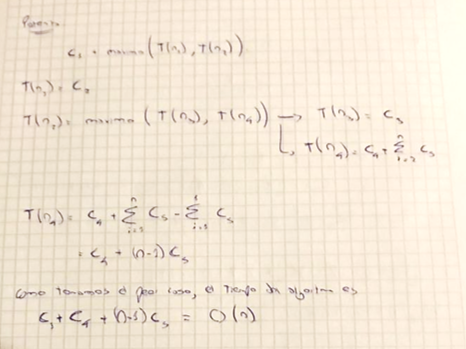 c₁ + maximo (T(n₁), T(n₂))
T(n₁) = c₂
T(n₂) = maximo (T(n₃), T(n₄)) → T(n₃) = c₃
↳ T(n₄) = c₄ + Σ c₅
T(n₄) = c₄ + Σ c₅ - Σ c₅
= c₄ + (n-1) c₅
Como tomamos el peor caso, el tiempo de algoritmo es
c₁ + c₄ + (n-1) c₅ = O(n)